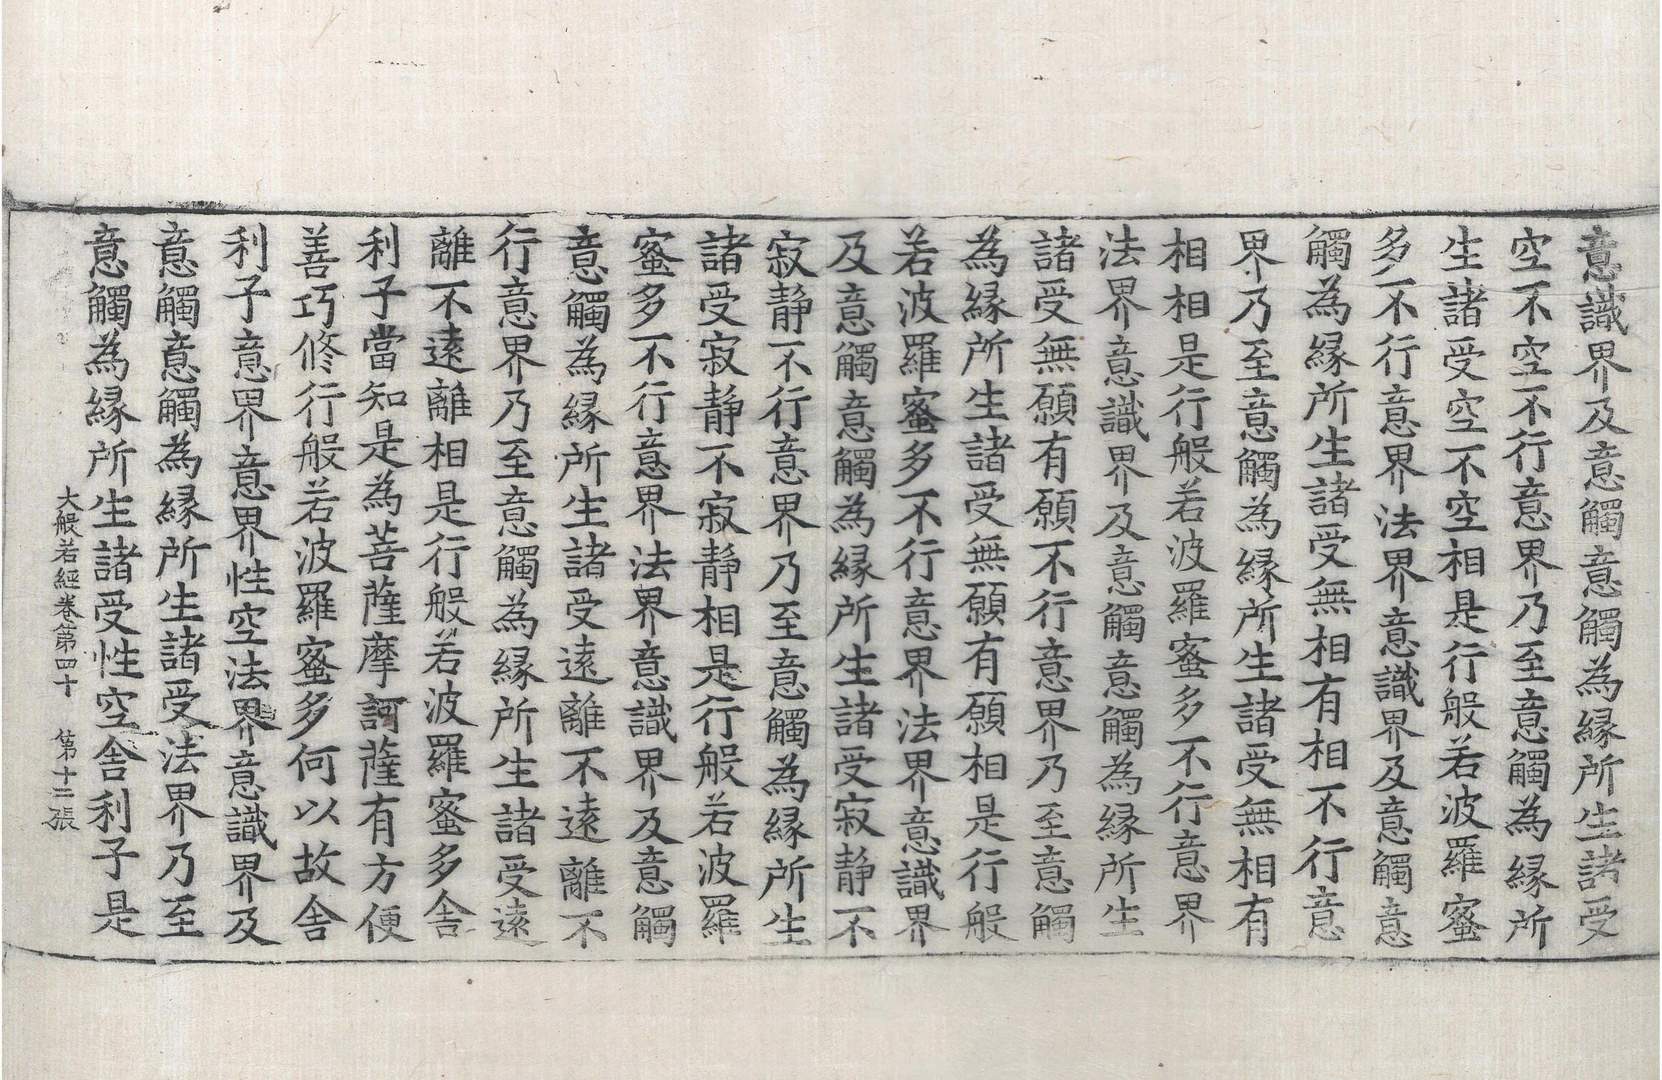 意識界及意觸意觸為縁所生諸受
空不空不行意界乃至意觸為縁所
生諸受空不空相是行般若波羅蜜
多不行意界法界意識界及意觸意
觸為縁所生諸受無相有相不行意
界乃至意觸為縁所生諸受無相有
相相是行般若波羅蜜多不行意界
法界意識界及意觸意觸為縁所生
諸受無願有願不行意界乃至意觸
為縁所生諸受無願有願相是行般
若波羅蜜多不行意界法界意識界
及意觸意觸為縁所生諸受寂静不
寂静不行意界乃至意觸為縁所生
諸受寂静不寂静相是行般若波羅
蜜多不行意界法界意識界及意觸
意觸為縁所生諸受遠離不遠離不
行意界乃至意觸為縁所生諸受遠
離不遠離相是行般若波羅蜜多舍
利子當知是為菩薩摩訶薩有方便
善巧修行般若波羅蜜多何以故舍
利子意界意界性空法界意識界及
意觸意觸為縁所生諸受法界乃至
意觸為縁所生諸受性空舍利子是
大般若經卷第四十 第十二張